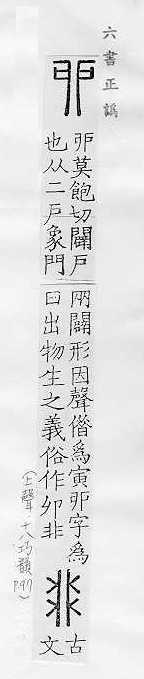 六書正譌
戼
戼莫飽切闢戶
也从二戶象門
兩闢形因聲借為寅戼字為
日出物生之義俗作夘非
古
文
(上聲·十八巧韻
P.97)